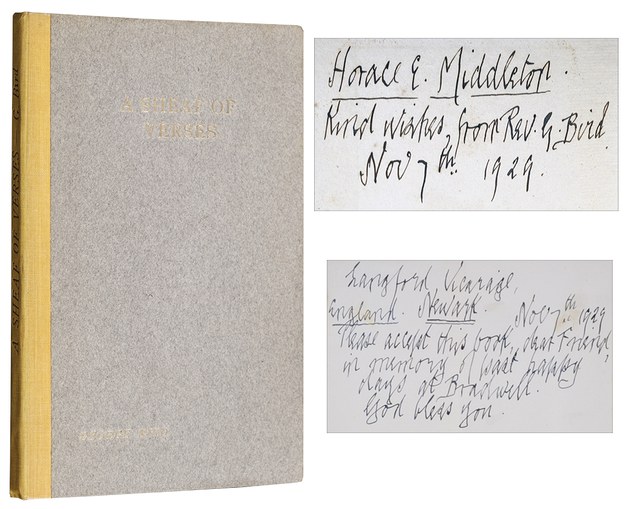 A SHEAF OF VERSES G. Bird
A SHEAF OF
VERSES
GEORGE BIRD
Horace E. Middleton.
Kind wishes, from Rev. G. Bird.
Nov 7th. 1929.
Langford, Vicarage,
England. Newark. Nov 7th 1929
Please accept this book, dear Friend,
in memory of past happy
days at Bradwell.
God bless you.